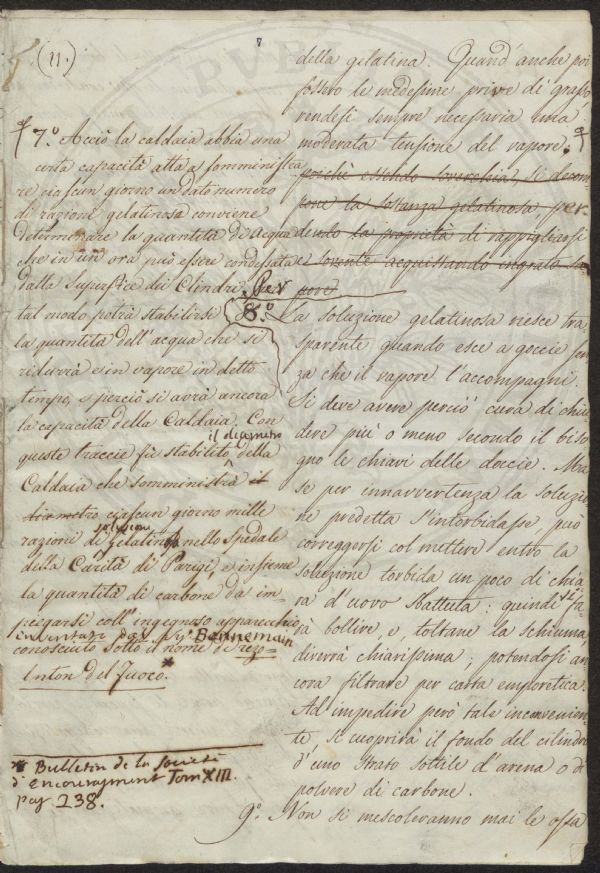 (11.)
7.º Acciò la caldaia abbia una
certa capacità atta a somministra
re ciascun giorno un dato numero
di razione gelatinosa conviene
determinare la quantità di Acqua
che in un ora può essere condensata
dalla superfice dei Clindri. Per
tal modo potrà stabilirsi
la quantità dell'acqua che si
ridurrà e in vapore in detto
tempo, e perciò si avrà ancora
la capacità della Caldaia. Con
il diametro
queste traccie fù stabilito della
Caldaia che somministrà il
diametro ciascun giorno mille
soluzione
razione di gelatinosa nello Spedale
della Carità di Parigi, e insieme
la quantità di carbone da im-
piegarsi coll'ingegnoso apparecchio
inventato dal Sigr Bonnemain
conosciuto sotto il nome di rego-
lator del fuoco.*
* Bulletin de la Societé
d'encouragment Tom XIII.
pag 238.
della gelatina. Quand'anche poi
fossero le medesime prive di grasso
rendesi sempre necessaria una
moderata tensione del vapore.
poichè essendo soverchia, si decom
pone la sostanza gelatinosa, per
dendo la proprietà di rappigliarsi
e sovente acquistando ingrato sa
pore
8.º La soluzione gelatinosa riesce tra
sparente quando esce a goccie sen
za che il vapore l'accompagni.
Si deve avere perciò cura di chiu
dere più o meno secondo il biso
gno le chiavi delle doccie. Ma
se per innavvertenza la soluzio
ne predetta s'intorbidasse può
correggersi col mettere entro la
soluzione torbida un poco di chia
ra d'uovo sbattuta: quindi si fa
rà bollire, e, toltane la schiuma,
diverrà chiarissima; potendosi an
cora filtrare per carta emporetica.
Ad impedire però tale inconvenien
te si cuoprirà il fondo del cilindro
d'uno strato sottile d'arena o di
polvere di carbone.
9º. Non si mescoleranno mai le ossa